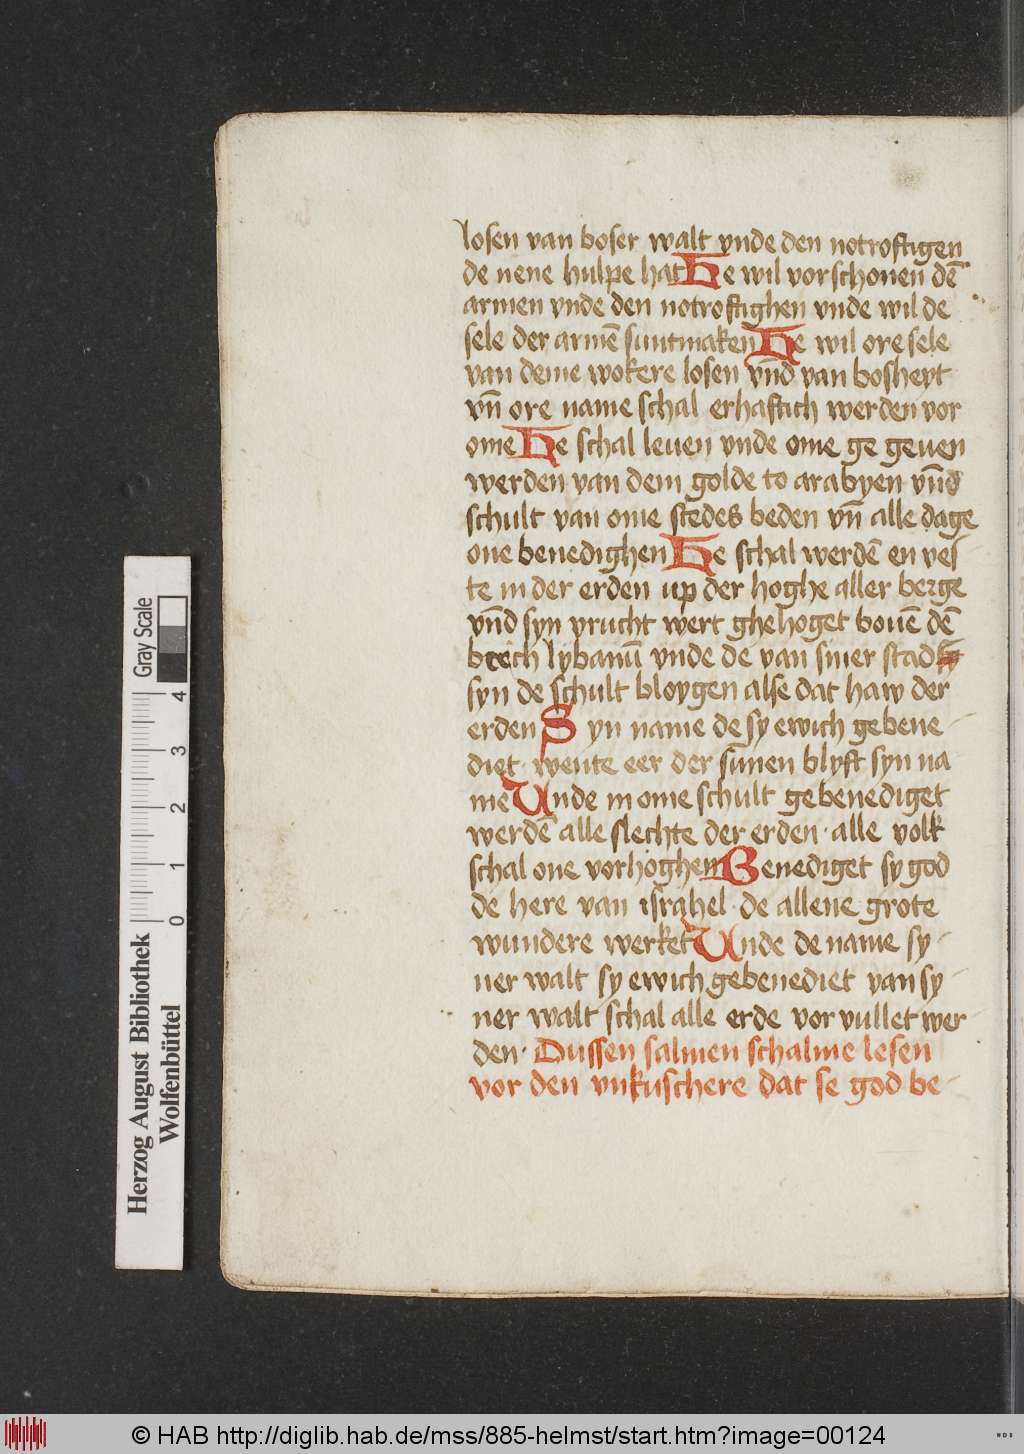 losen van boser walt vnde den notroftigen
de nene hulpe hat He wil vorschonen dē
armen vnde den notroftighen vnde wil de
sele der armē suntmaken He wil ore sele
van deme wokere losen vn̄d van bosheyt
vn̄ ore name schal erhaftich werden vor
ome He schal leuen vnde ome ge geuen
werden van dem golde to arabyen vn̄d
schult van ome stedes beden vn̄ alle dage
one benedighen He schal werdē en ves-
te in der erden up der hoghe aller berge
vn̄d syn vrucht wert ghehoget bouē dē
berch lybanū vnde de van siner stad
syn de schult bloygen alse dat haw der
erden Syn name de sy ewich gebene-
diet· wente eer der sunen blyft syn na
me Unde in ome schult gebenediget
werdē alle slechte der erden· alle volk
schal one vorhoghem Benediget sy god
de here van israhel· de allene grote
wundere werket Unde de name sy-
ner walt sy ewich gebenediet van sy-
ner walt schal alle erde vor vullet wer
den· Dussen salmen schalme lesen
vor den vnkuschere dat se god be-
Herzog August Bibliothek
Wolfenbüttel
0 1 2 3 4
Gray Scale
© HAB http://diglib.hab.de/mss/885-helmst/start.htm?image=00124